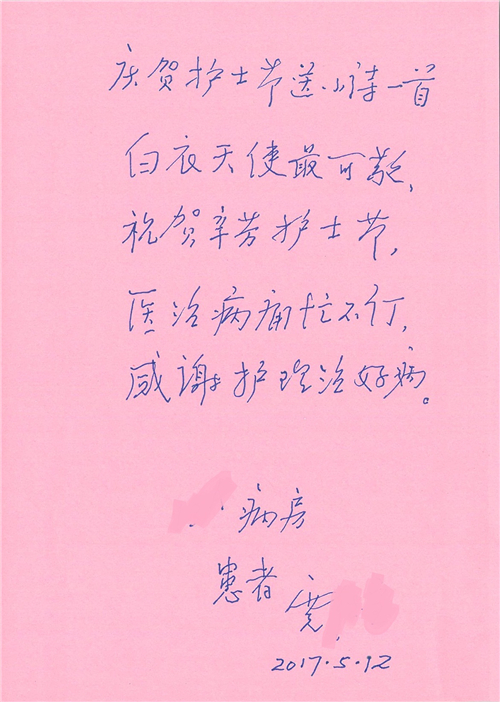 庆贺护士节送小诗一首
白衣天使最可敬,
祝贺辛劳护士节,
医治病痛忙不仃,
感谢护理治好病。
病房
患者
2017.5.12